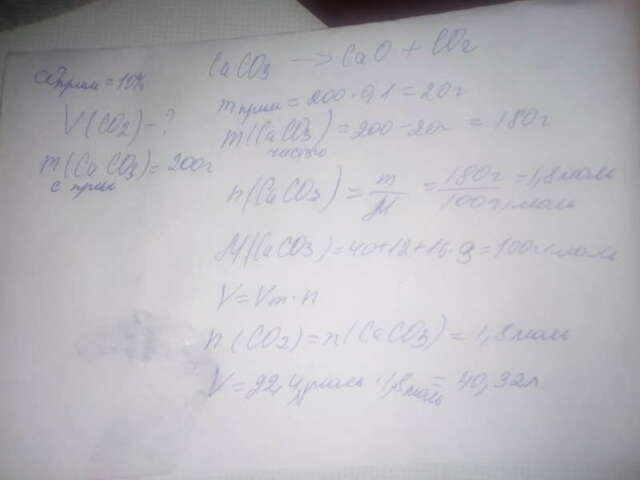 ωприм = 10%
V(CO2) - ?
m(CaCO3) = 200г
с прим
CaCO3 → CaO + CO2
mприм = 200 · 0,1 = 20г
m(CaCO3) = 200 - 20г = 180г
чисто
n(CaCO3) = m/M = 180г/100г/моль = 1,8моль
M(CaCO3) = 40+12+16·3 = 100г/моль
V = Vm · n
n(CO2) = n(CaCO3) = 1,8моль
V = 22,4л/моль · 1,8моль = 40,32л